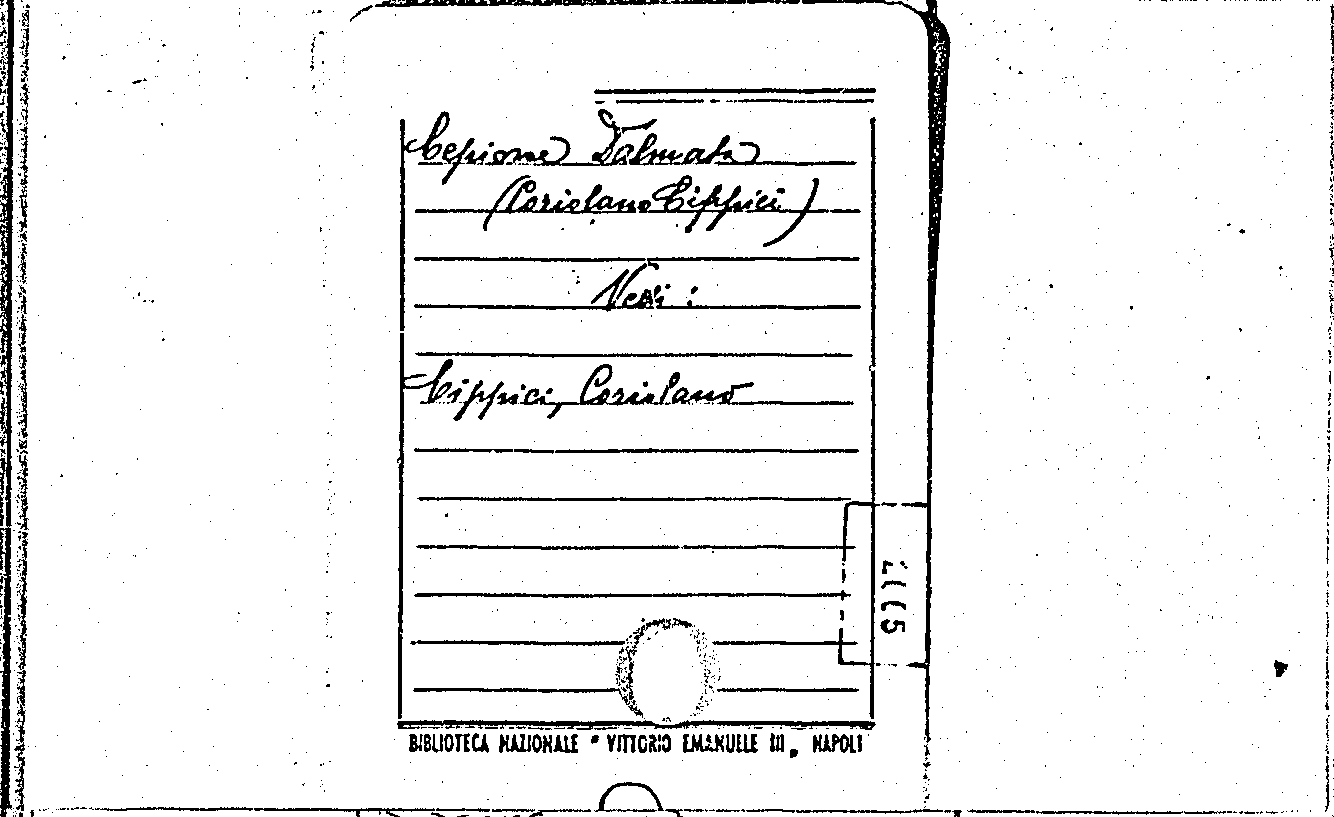 Cepione Dalmata
(Coriolano Cippici)
Vedi :
Cippici, Coriolano
BIBLIOTECA NAZIONALE "VITTORIO EMANUELE III„ NAPOLI